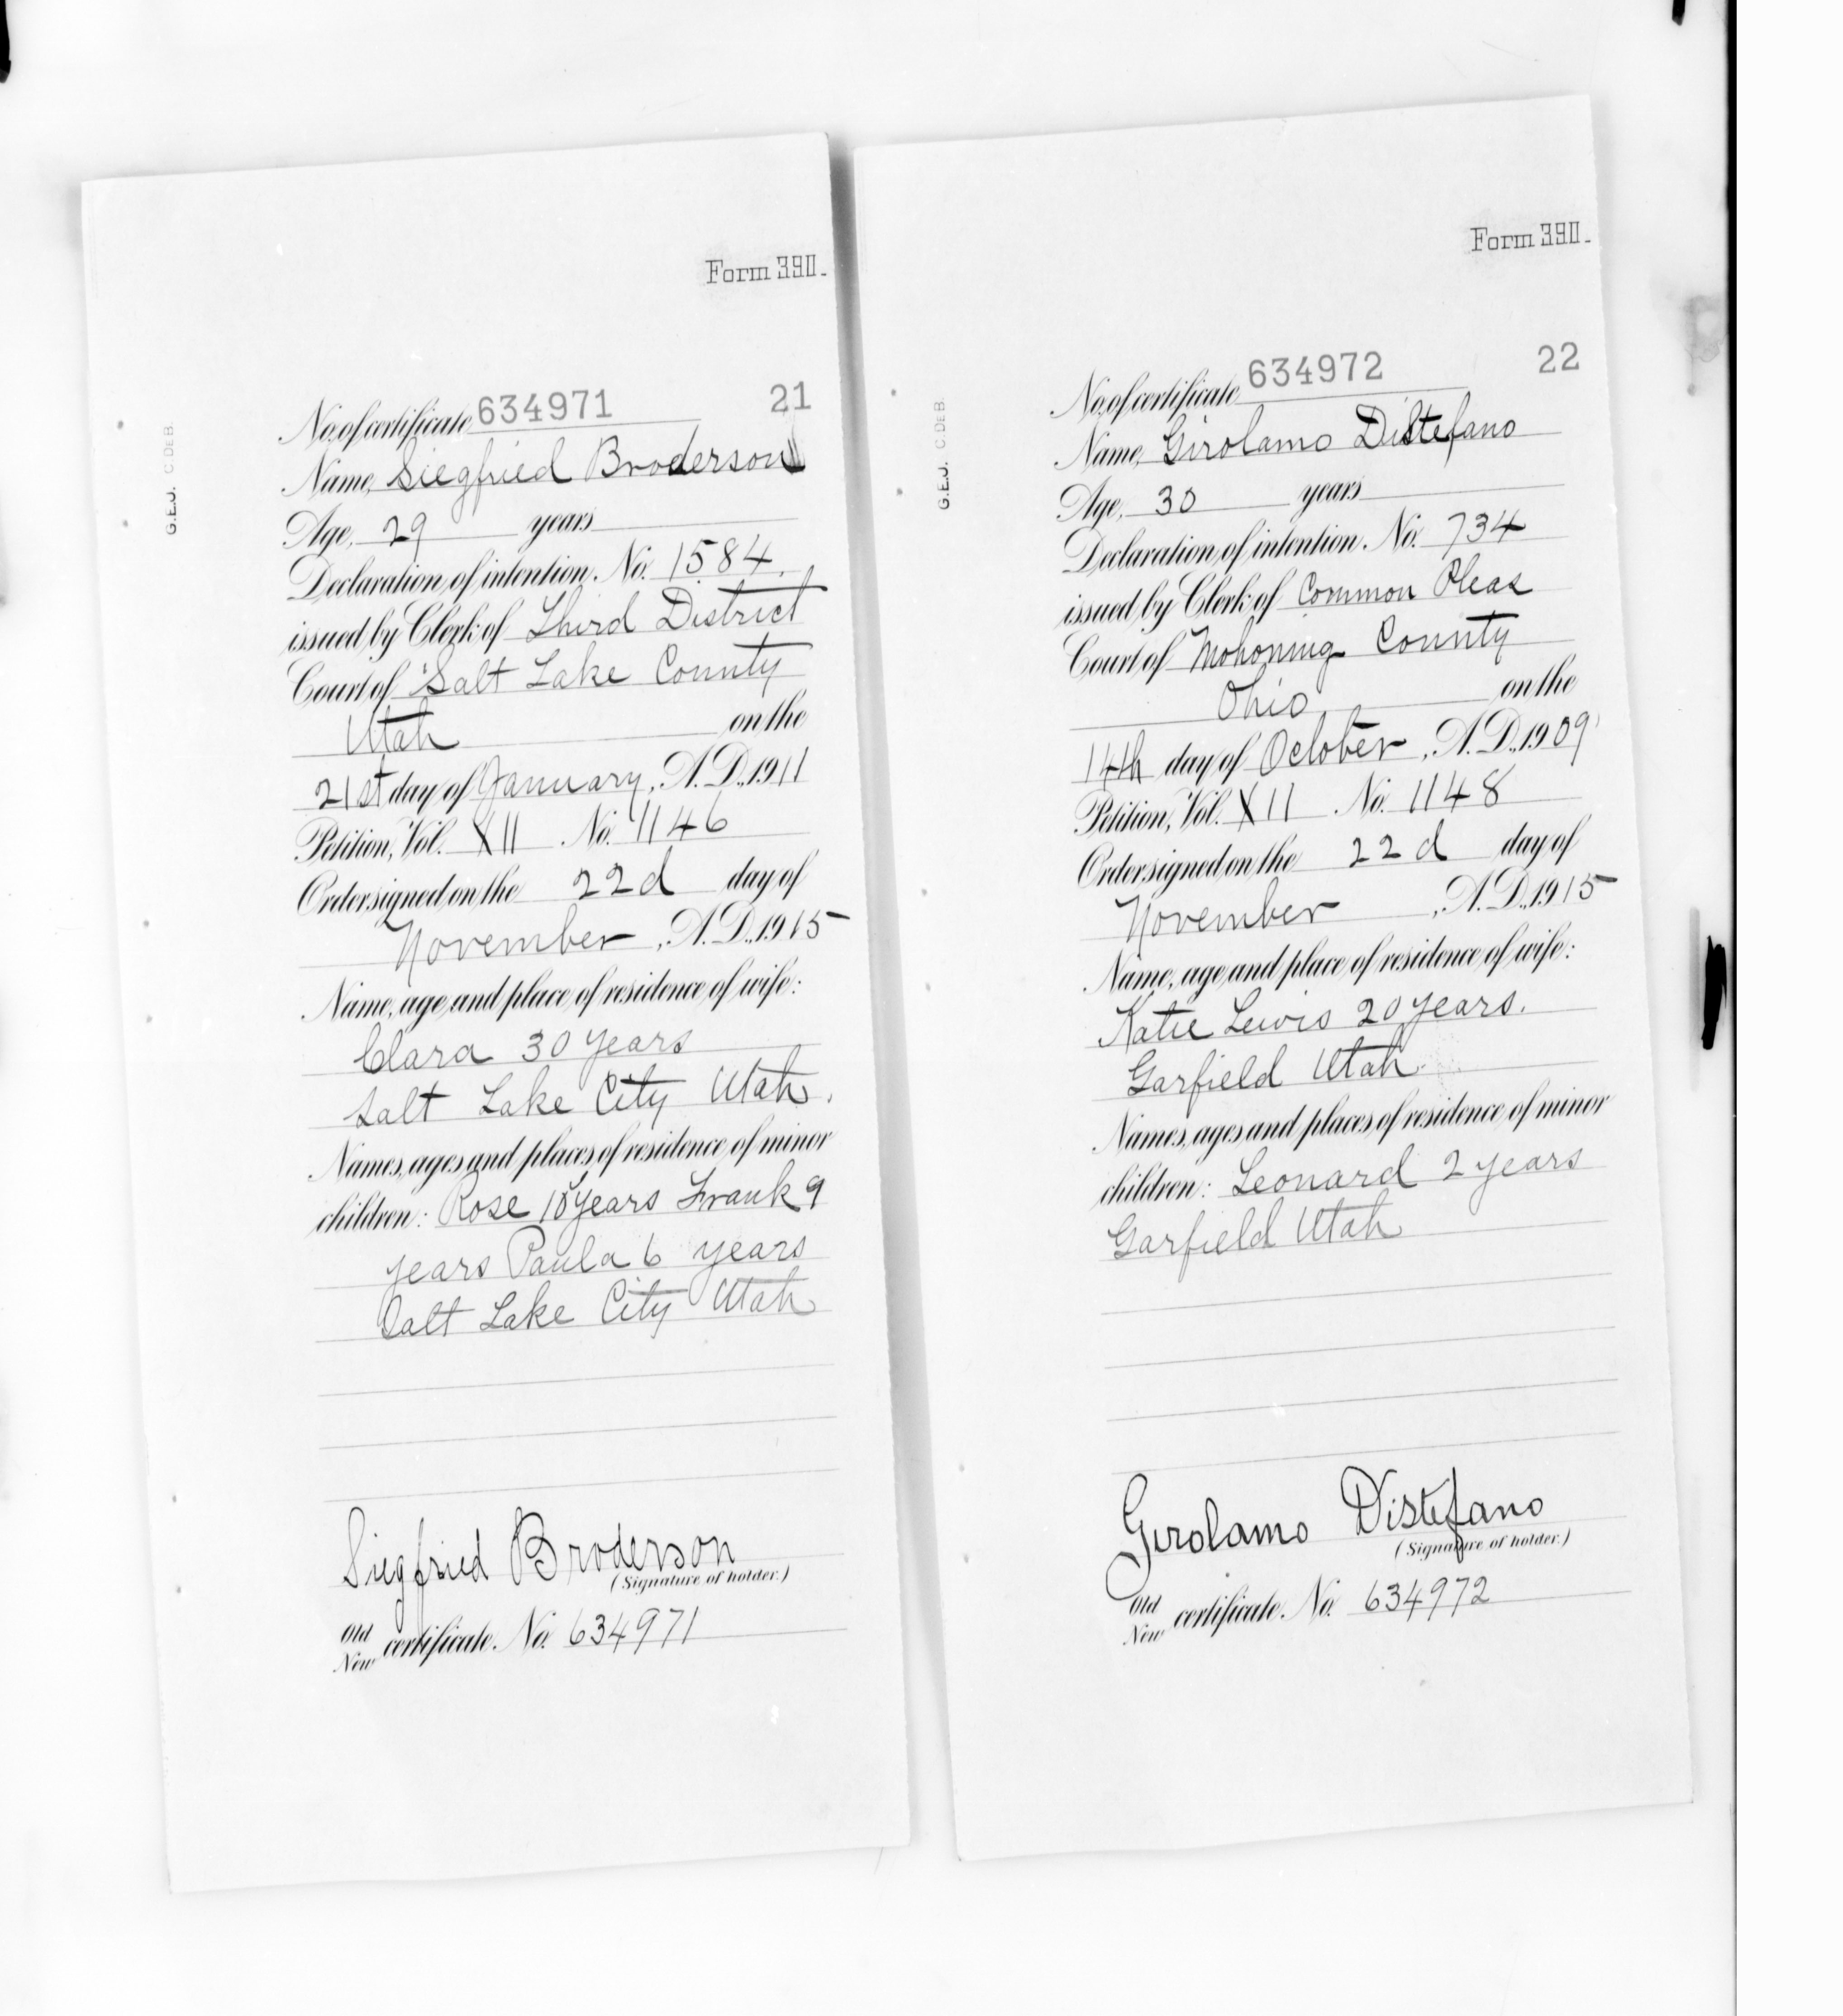 Form 390.
G.E.J. C.DEB.
No. of certificate, 634971 21
Name, Siegfried Broderson
Age, 29 years
Declaration of intention, No. 1584.
issued by Clerk of Third District
Court of Salt Lake County
Utah on the
21st day of January, A.D., 1911
Petition, Vol. XII No. 1146
Order signed on the 22d day of
November, A.D., 1915
Name, age and place of residence of wife:
Clara 30 years
Salt Lake City Utah.
Names, ages and places of residence of minor
children: Rose 10 years Frank 9
years Paula 6 years
Salt Lake City Utah
Siegfried Broderson
(Signature of holder.)
Old
New certificate, No. 634971
Form 390.
G.E.J. C.DEB.
No. of certificate, 634972 22
Name, Girolamo Distefano
Age, 30 years
Declaration of intention, No. 734
issued by Clerk of Common Pleas
Court of Mohoning County
Ohio on the
14th day of October, A.D., 1909
Petition, Vol. XII No. 1148
Order signed on the 22d day of
November, A.D., 1915
Name, age and place of residence of wife:
Katie Lewis 20 years.
Garfield Utah.
Names, ages and places of residence of minor
children: Leonard 2 years
Garfield Utah
Girolamo Distefano
(Signature of holder.)
Old
New certificate, No. 634972